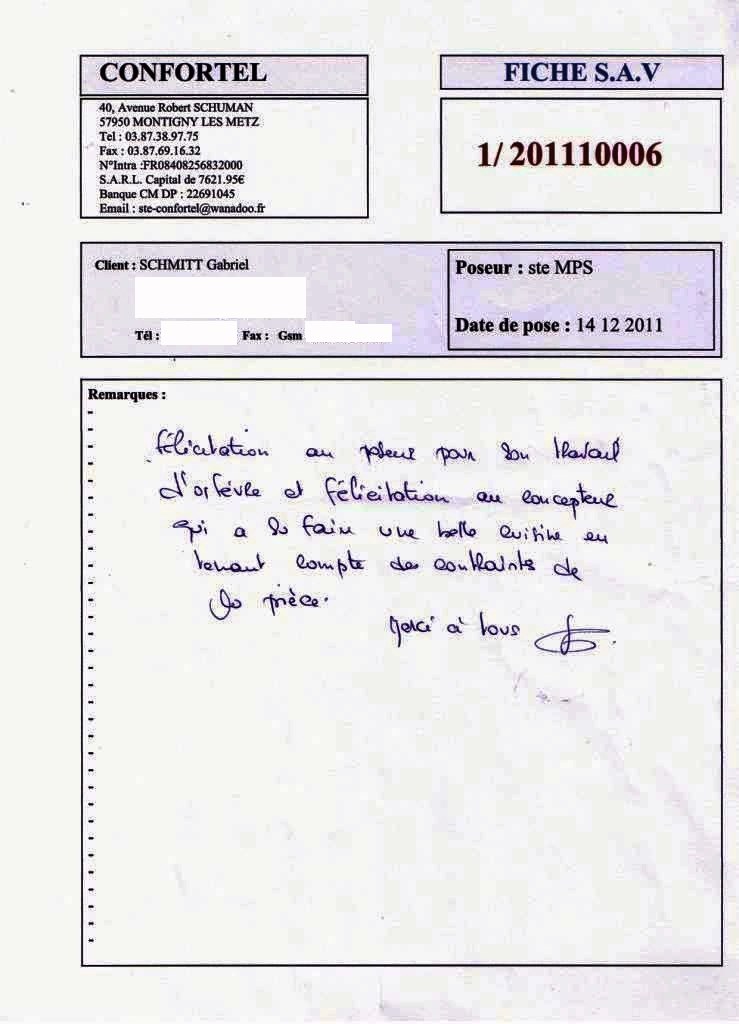 CONFORTEL
40, Avenue Robert SCHUMAN
57950 MONTIGNY LES METZ
Tel : 03.87.38.97.75
Fax : 03.87.69.16.32
N°Intra :FR08408256832000
S.A.R.L. Capital de 7621.95€
Banque CM DP : 22691045
Email : ste-confortel@wanadoo.fr
FICHE S.A.V
1/ 201110006
Client : SCHMITT Gabriel
Tél :
Fax : Gsm
Poseur : ste MPS
Date de pose : 14 12 2011
Remarques :
félicitation au poseur pour son travail
d'orfévre et félicitation au concepteur
qui a su faire une belle cuisine en
tenant compte des contraints de
la pièce.
Merci à tous